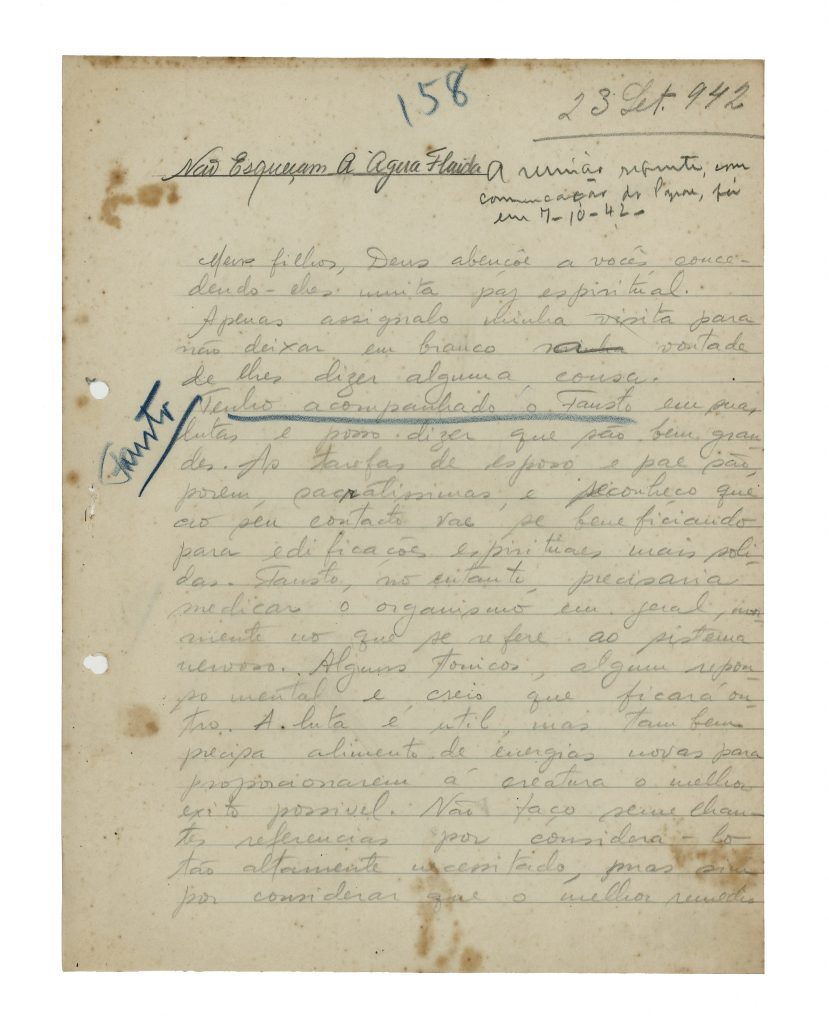 158
23 Set. 942
Não Esqueçam A Agua Fluida
A reunião seguinte, com
comunicação do Papae, foi
em 7-10-42-
Meus filhos, Deus abençõe a vocês, conce-
dendo-lhes muita paz espiritual.
Apenas assignalo minha visita para
não deixar em branco minha vontade
de lhes dizer alguma cousa.
Tenho acompanhado o Fausto em suas
Fausto
lutas e posso dizer que são bem gran-
des. As tarefas de esposo e pae são,
porem, sacratissimas, e reconheço que
ao seu contacto vae se beneficiando
para edificações espirituaes mais soli-
das. Fausto, no entanto, precisaria
medicar o organismo em geral,
mente no que se refere ao sistema
nervoso. Alguns tonicos, algum repou-
so mental e creio que ficará ou-
tro. A luta é util, mas tambem
precisa alimento de energias novas para
proporcionarem á creatura o melhor
exito possivel. Não faço semelhan-
tes referencias por considera-lo
tão altamente necessitado, mas sim
por considerar que o melhor remedio